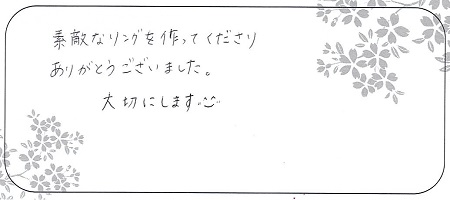 素敵なリングを作ってくださり
ありがとうございました。
大切にします